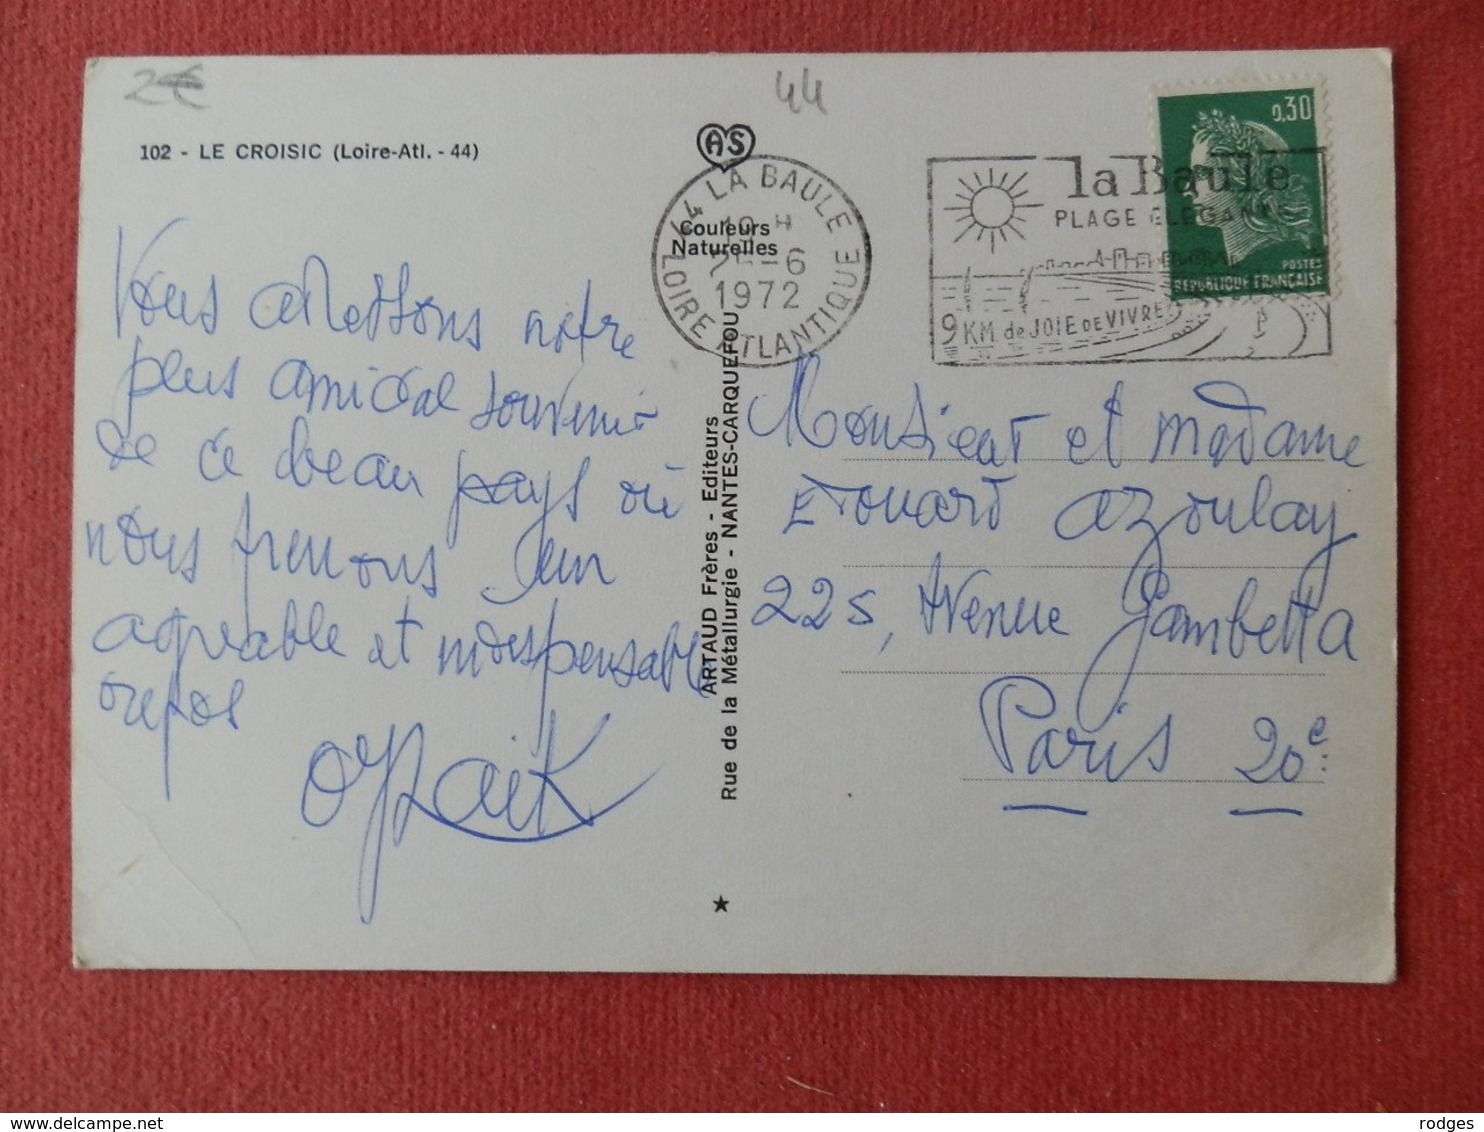 2€
44
102 - LE CROISIC (Loire-Atl. - 44)
AS
Couleurs
Naturelles
44 LA BAULE
LOIRE ATLANTIQUE
25-6
1972
la Baule
PLAGE ELEGANTE
9 KM de JOIE DE VIVRE
0,30
POSTES
REPUBLIQUE FRANÇAISE
Vous adressons notre
plus amical souvenir
de ce beau pays où
nous prenons un
agréable et indispensable
repos
ARTAUD Frères - Editeurs
Rue de la Métallurgie - NANTES-CARQUEFOU
Monsieur et Madame
Edouard Azoulay
225, Avenue Gambetta
Paris 20e
delcampe.net
rodges